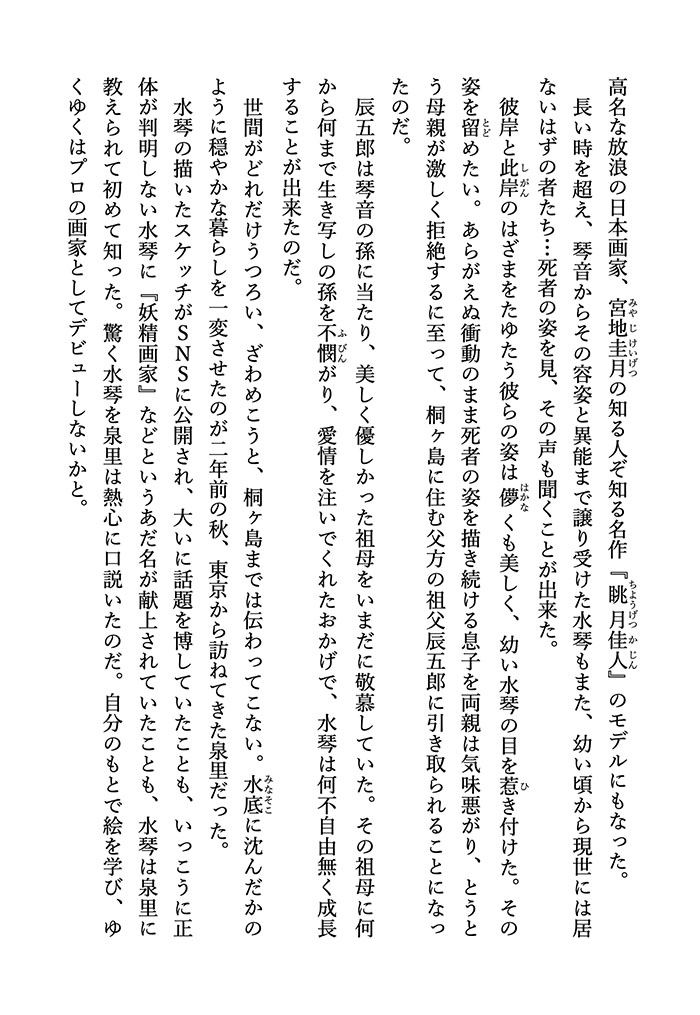 高名な放浪の日本画家、宮地圭月の知る人ぞ知る名作『眺月佳人』のモデルにもなった。
長い時を超え、琴音からその容姿と異能まで譲り受けた水琴もまた、幼い頃から現世には居
ないはずの者たち…死者の姿を見、その声も聞くことが出来た。
彼岸と此岸のはざまをたゆたう彼らの姿は儚くも美しく、幼い水琴の目を惹き付けた。その
姿を留めたい。あらがえぬ衝動のまま死者の姿を描き続ける息子を両親は気味悪がり、とうと
う母親が激しく拒絶するに至って、桐ヶ島に住む父方の祖父辰五郎に引き取られることになっ
たのだ。
辰五郎は琴音の孫に当たり、美しく優しかった祖母をいまだに敬慕していた。その祖母に何
から何まで生き写しの孫を不憫がり、愛情を注いでくれたおかげで、水琴は何不自由無く成長
することが出来たのだ。
世間がどれだけうつろい、ざわめこうと、桐ヶ島までは伝わってこない。水底に沈んだかの
ように穏やかな暮らしを一変させたのが二年前の秋、東京から訪ねてきた泉里だった。
水琴の描いたスケッチがＳＮＳに公開され、大いに話題を博していたことも、いっこうに正
体が判明しない水琴に『妖精画家』などというあだ名が献上されていたことも、水琴は泉里に
教えられて初めて知った。驚く水琴を泉里は熱心に口説いたのだ。自分のもとで絵を学び、ゆ
くゆくはプロの画家としてデビューしないかと。